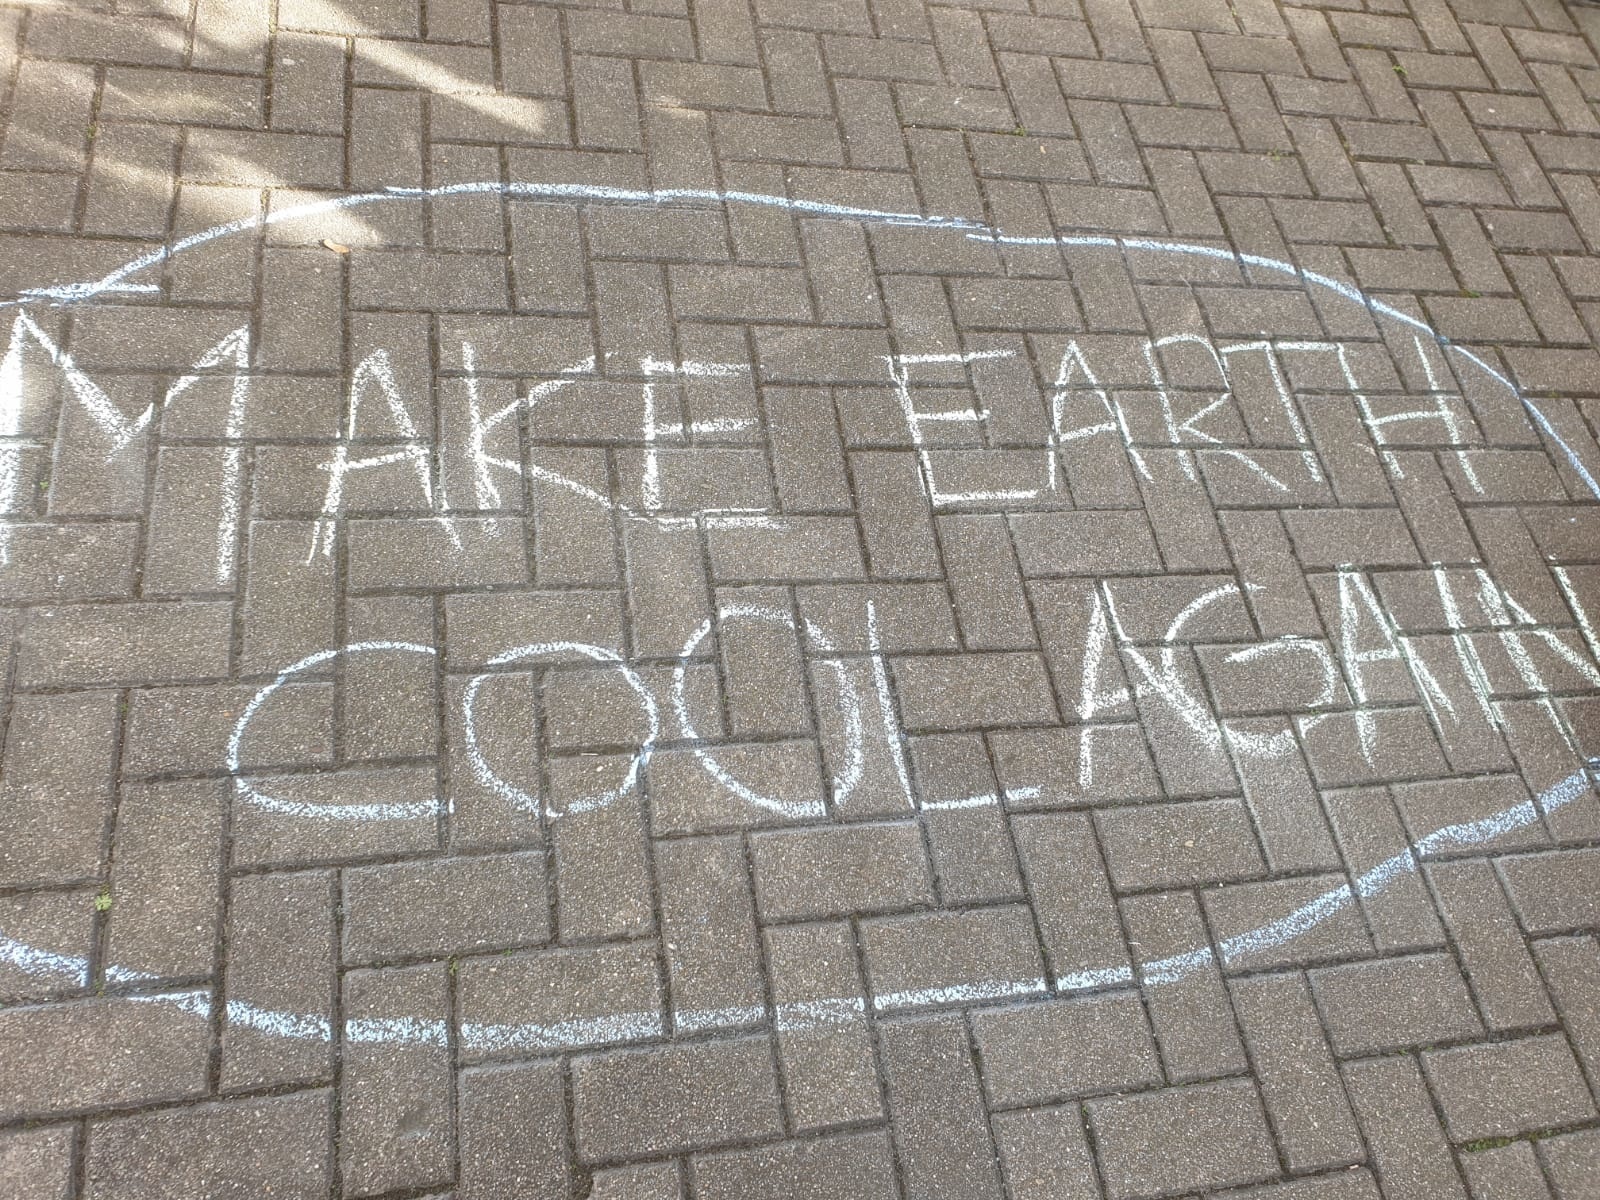 MAKE EARTH
COOL AGAIN